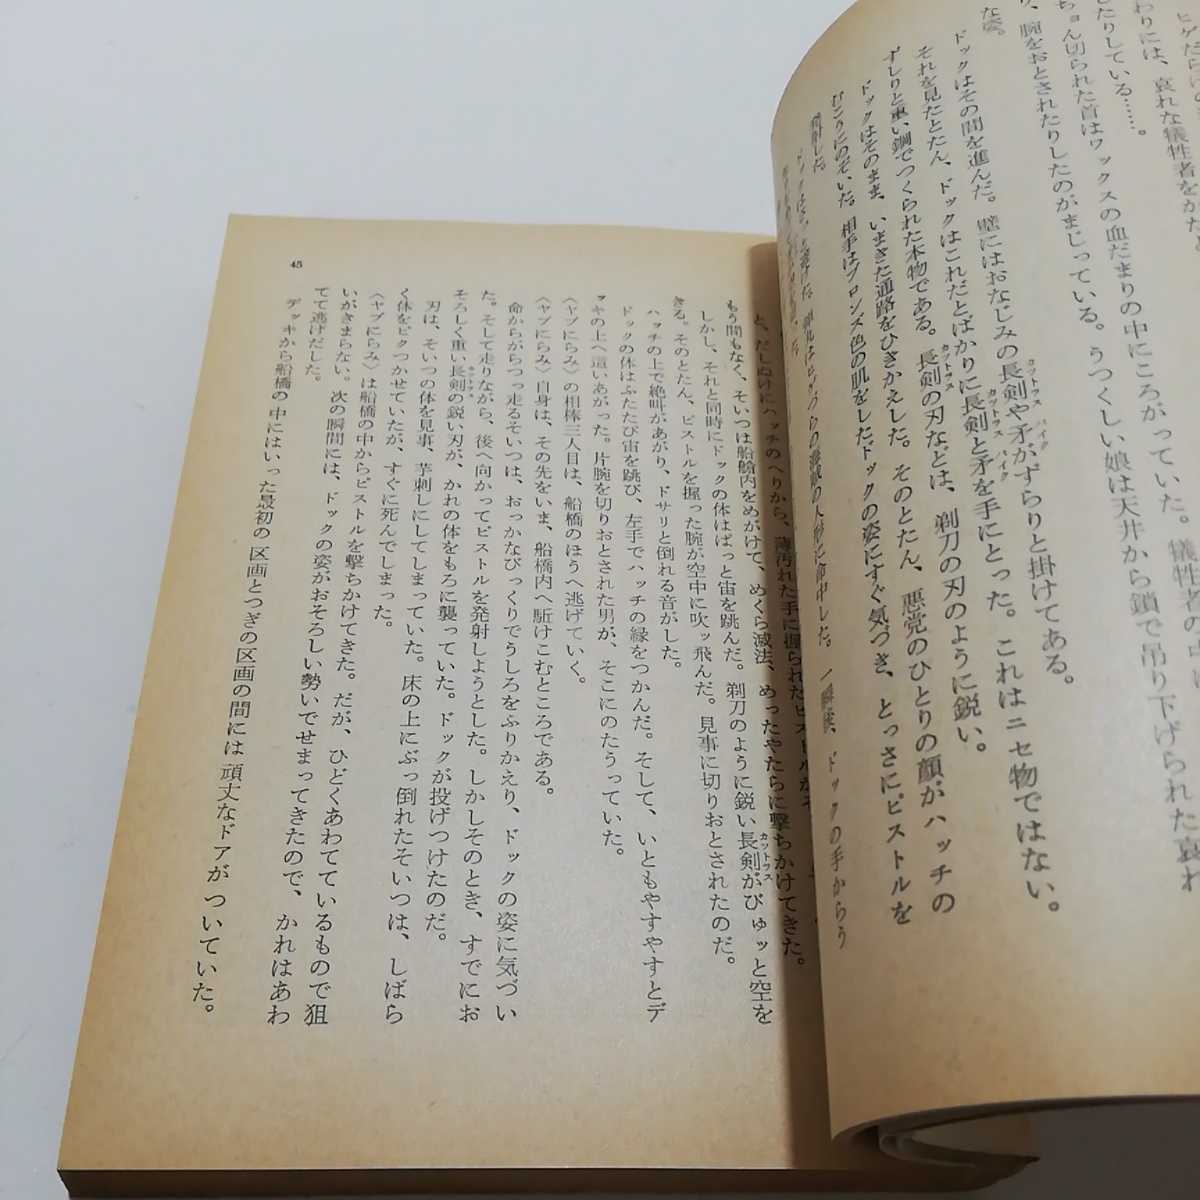 ヒゲだらけ
わりには、哀れな犠牲者をかた
したりしている……。
ちょん切られた首はワックスの血だまりの中にころがっていた。犠牲者の中に
腕をおとされたりしたのがまじっている。うつくしい娘は天井から鎖で吊り下げられた哀れ
な姿。
ドックはその間を進んだ。壁にはおなじみの長剣や矛がずらりと掛けてある。
カットラス
パイク
それを見たとたん、ドックはこれだとばかりに長剣と矛を手にとった。これはニセ物ではない。
カットラス
パイク
ずしりと重い鋼でつくられた本物である。長剣の刃などは、剃刀の刃のように鋭い。
カットラス
ドックはそのまま、いまきた通路をひきかえした。そのとたん、悪党のひとりの顔がハッチの
むこうにのぞいた。相手はブロンズ色の肌をしたドックの姿にすぐ気づき、とっさにピストルを
発射した。
の海賊の人形に命中した。一瞬後、ドックの手からう
と、だしぬけにハッチのへりから、薄汚れた手に握られたピストルが
もう間もなく、そいつは船艙内をめがけて、めくら滅法、めったやたらに撃ちかけてきた。
しかし、それと同時にドックの体はぱっと宙を跳んだ。剃刀のように鋭い長剣がびゅッと空を
カットラス
きる。そのとたん、ピストルを握った腕が空中に吹ッ飛んだ。見事に切りおとされたのだ。
ハッチの上で絶叫があがり、ドサリと倒れる音がした。
ドックの体はふたたび宙を跳び、左手でハッチの縁をつかんだ。そして、いともやすやすとデ
ッキの上へ這いあがった。片腕を切りおとされた男が、そこにのたうっていた。
〈ヤブにらみ〉の相棒三人目は、船橋のほうへ逃げていく。
〈ヤブにらみ〉自身は、その先をいま、船橋内へ駈けこむところである。
命からがらつっ走るそいつは、おっかなびっくりでうしろをふりかえり、ドックの姿に気づい
た。そして走りながら、後へ向かってピストルを発射しようとした。しかしそのとき、すでにお
そろしく重い長剣の鋭い刃が、かれの体をもろに襲っていた。ドックが投げつけたのだ。
カットラス
刃は、そいつの体を見事、芋刺しにしてしまっていた。床の上にぶっ倒れたそいつは、しばら
く体をピクつかせていたが、すぐに死んでしまった。
〈ヤブにらみ〉は船橋の中からピストルを撃ちかけてきた。だが、ひどくあわてているもので狙
いがきまらない。次の瞬間には、ドックの姿がおそろしい勢いでせまってきたので、かれはあわ
てて逃げだした。
デッキから船橋の中にはいった最初の区画とつぎの区画の間には頑丈なドアがついていた。
45